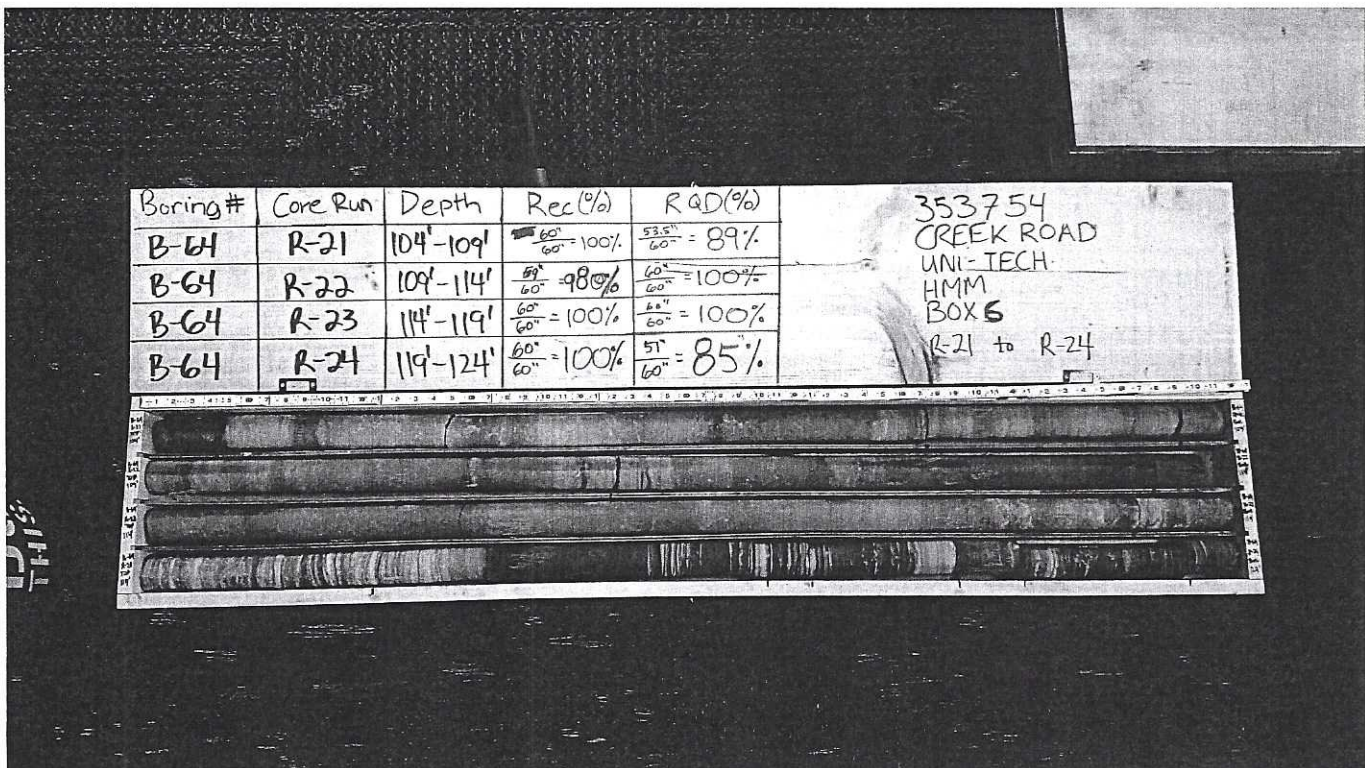 Boring # Core Run Depth Rec (%) RQD (%)
B-64 R-21 104'-109' 60"/60" = 100% 53.5"/60" = 89%
B-64 R-22 109'-114' 59"/60" = 98% 60"/60" = 100%
B-64 R-23 114'-119' 60"/60" = 100% 60"/60" = 100%
B-64 R-24 119'-124' 60"/60" = 100% 51"/60" = 85%
353754
CREEK ROAD
UNI-TECH
HMM
BOX 6
R-21 to R-24